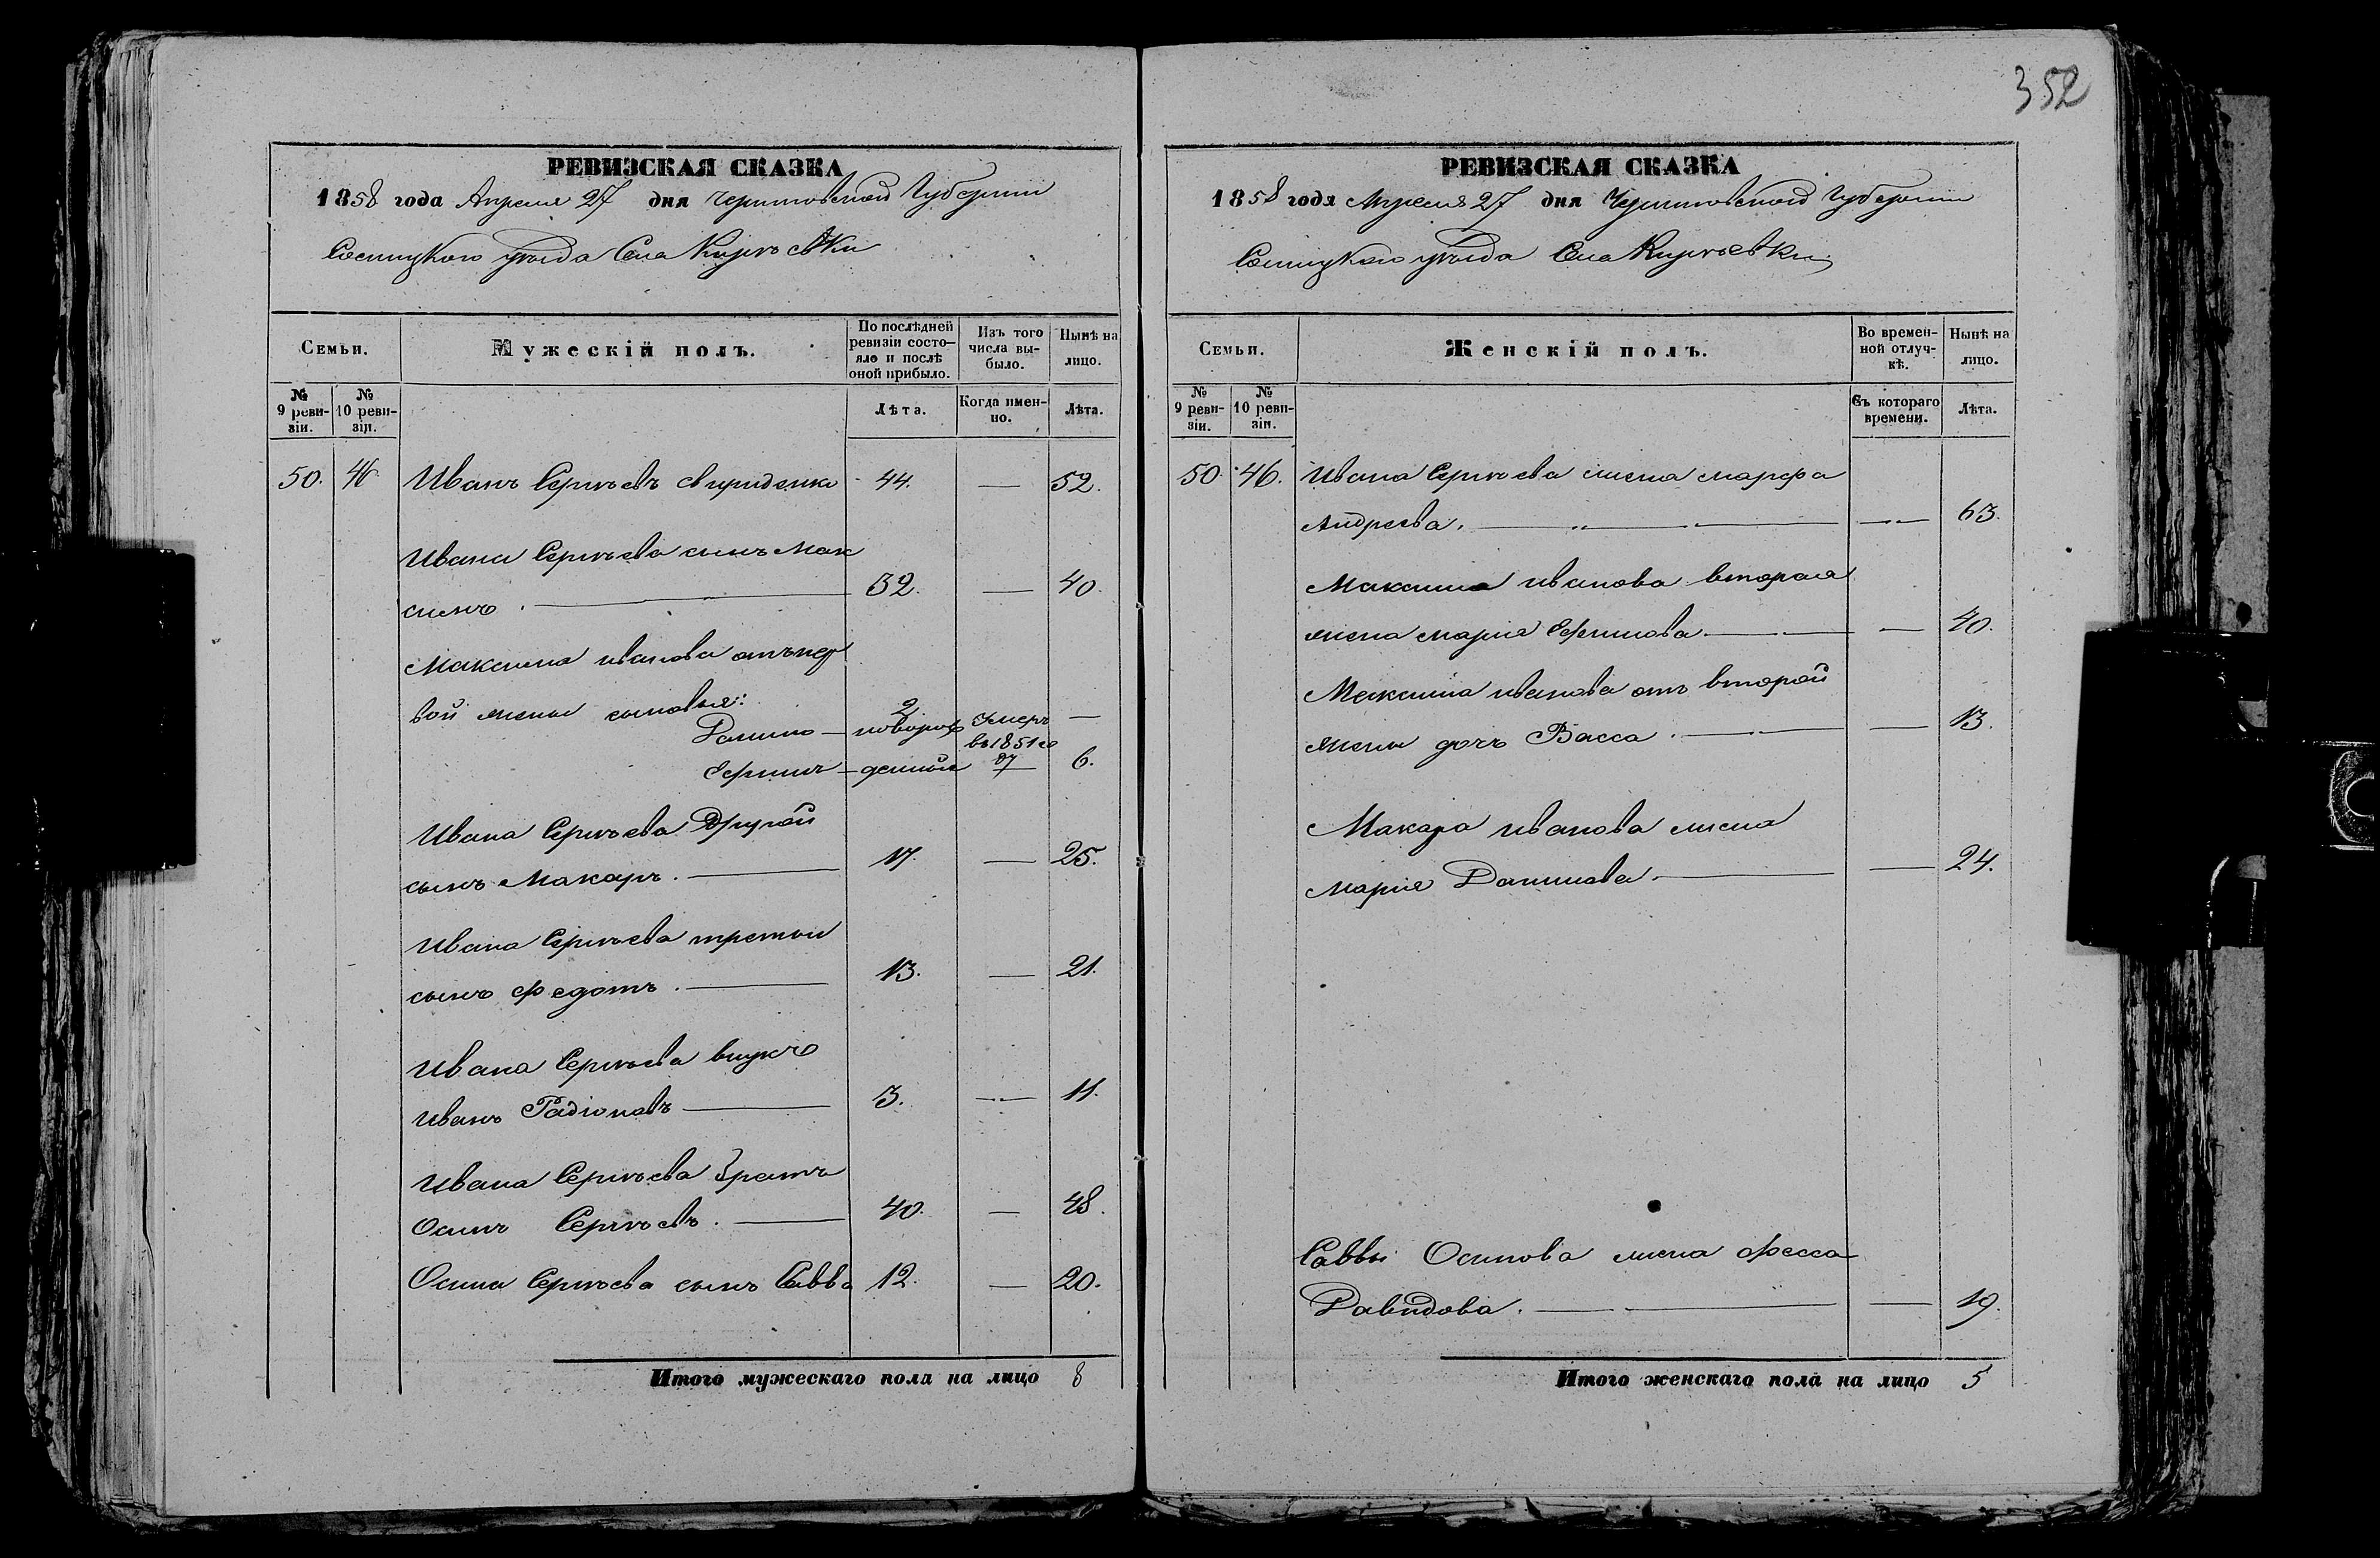 352
РЕВИЗСКАЯ СКАЗКА
1858 года Апреля 27 дня Черниговской Губернии
Сосницкого уѣзда Села Киріевки
Семьи.
Мужескій полъ.
По послѣдней ревизіи состояло и послѣ оной прибыло.
Изъ того числа выбыло.
Нынѣ на лицо.
№ 9 ревизіи.
№ 10 ревизіи.
Лѣта.
Когда именно.
Лѣта.
50. 46 Иванъ Сергѣевъ Свириденко 44. — 52.
Ивана Сергѣева сынъ Мак
симъ. — 32. — 40.
Максима иванова отъ пер
вой жены сыновья:
Данило — 2 умеръ —
въ 1851 го
ду
Ефимъ — новорожденный — 6.
Ивана Сергѣева Другой
сынъ Макаръ. — 17. — 25.
Ивана Сергѣева третий
сынъ Федотъ. — 13. — 21.
Ивана Сергѣева внукъ
иванъ Радіоновъ — 3. — 11.
Ивана Сергѣева братъ
Осипъ Сергѣевъ. — 40. — 48.
Осипа Сергѣева сынъ Савва 12. — 20.
Итого мужескаго пола на лицо 8
РЕВИЗСКАЯ СКАЗКА
1858 года Апреля 27 дня Черниговской Губернии
Сосницкого уѣзда Села Киріевки
Семьи.
Женскій полъ.
Во временной отлучкѣ.
Нынѣ на лицо.
№ 9 ревизіи.
№ 10 ревизіи.
Съ котораго времени.
Лѣта.
50. 46. Ивана Сергѣева жена марфа
Андреева. — — 63.
Максима иванова вторая
жена мария Ефимова. — — 40.
Максима иванова отъ второй
жены дочь Васса. — — 13.
Макара иванова жена
мария Данилова. — — 24.
Саввы Осипова жена Фесса
Давидова. — — 19.
Итого женскаго пола на лицо 5